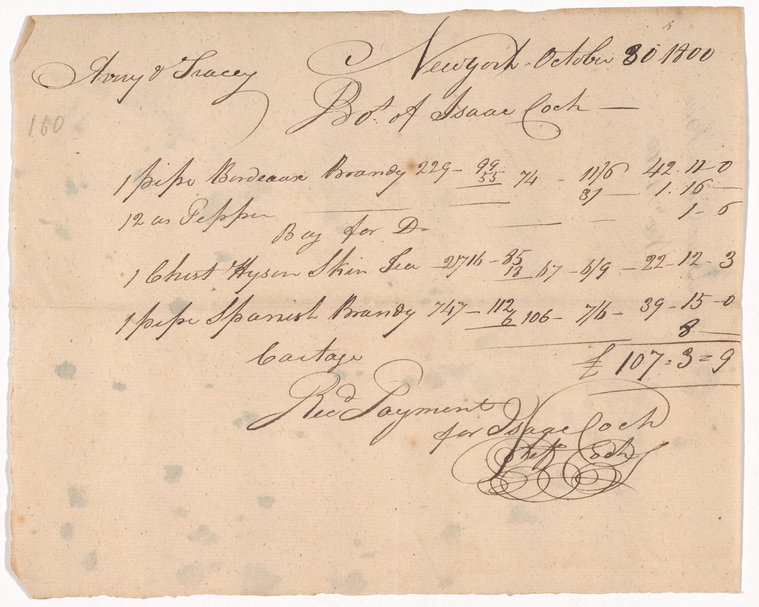 Newyork October 30th 1800
Avery & Tracey
Bot. of Isaac Coch —
160
1 pipe Bordeaux Brandy 229 – 99 74 – 11/6 42 . 11 – 0
12 Pepper 3/ — 1 . 16 —
Bag for Do 1 – 6
1 Chest Hyson Skin Tea 85 67 – 6/9 – 22 – 12 – 3
18
1 pipe Spanish Brandy 747 – 112 106 – 7/6 – 39 – 15 – 0
6
Cartage 8 —
£ 107 = 3 = 9
Recd Payment
for Isaac Coch
Coch